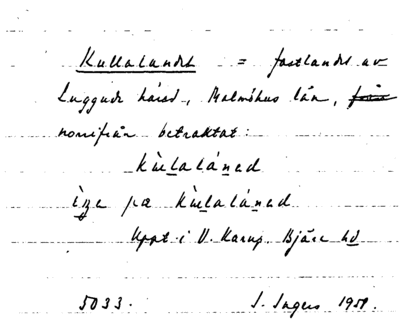 Kullalandet = fastlandet av
Luggude härad, Malmöhus län, från
norrifrån betraktat:
kùlaláned
ìze pa kùlaláned
Uppt i V. Karup, Bjäre hd
5033. I. Ingers 1958.